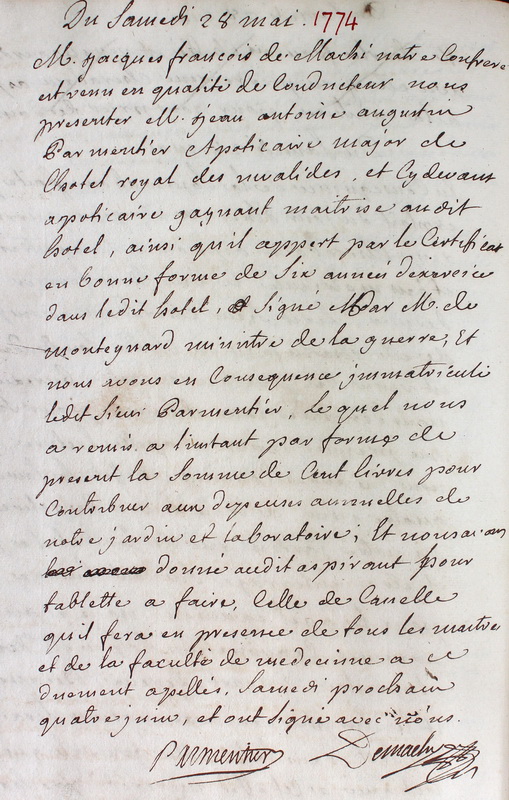 Du Samedi 28 mai . 1774
M. Jacques francois de Machi notre Confrere
est venu en qualité de Conducteur nous
presenter M. Jean antoine augustin
Parmentier Apoticaire major de
Lhotel royal des invalides, et Cy devant
apoticaire gagnant maitrise audit
hotel, ainsi quil appert par le Certificat
en bonne forme de Six années dexercice
dans ledit hotel, Signé par M. de
monteynard ministre de la guerre, Et
nous avons en Consequence immatriculé
ledit Sieur Parmentier, Le quel nous
a remis a linstant par forme de
present la Somme de Cent livres pour
Contribuer aux depenses annuelles de
notre jardin et laboratoire; Et nous avons
donné audit aspirant pour
tablette a faire, Celle de Canelle
quil fera en presence de tous les maitre
et de la faculté de medecinne a ce
duement apellés, Samedi prochain
quatre juin, et ont Signé avec nous.
Parmentier Demachy